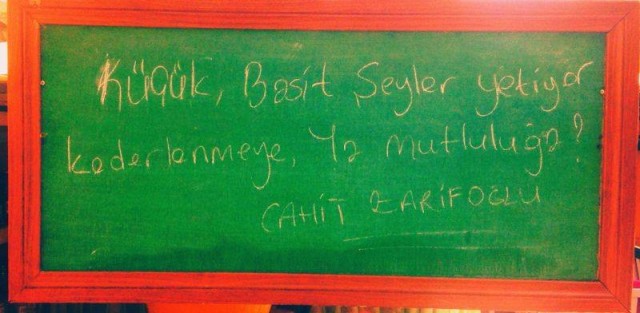 Küçük, Basit Şeyler yetiyor
kederlenmeye, Ya mutluluğa?
CAHİT ZARİFOĞLU